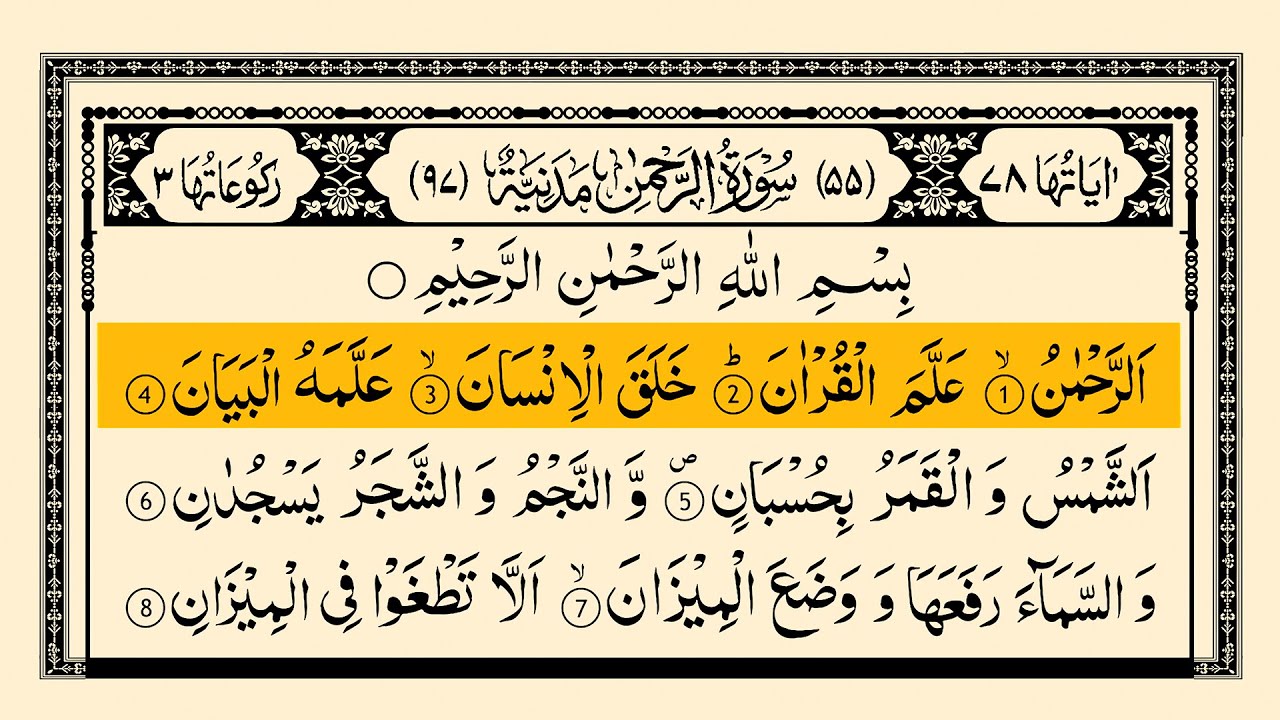 اٰیَاتُهَا ۷۸ (۵۵) سُوْرَةُ الرَّحْمٰنِ مَدَنِیَّةٌ (۹۷) رُكُوْعَاتُهَا ۳
بِسْمِ اللّٰهِ الرَّحْمٰنِ الرَّحِیْمِ ○
اَلرَّحْمٰنُ ۙ1 عَلَّمَ الْقُرْاٰنَ ؕ2 خَلَقَ الْاِنْسَانَ ۙ3 عَلَّمَهُ الْبَیَانَ 4
اَلشَّمْسُ وَ الْقَمَرُ بِحُسْبَانٍ ۪5 وَّ النَّجْمُ وَ الشَّجَرُ یَسْجُدٰنِ 6
وَ السَّمَآءَ رَفَعَهَا وَ وَضَعَ الْمِیْزَانَ ۙ7 اَلَّا تَطْغَوْا فِی الْمِیْزَانِ 8